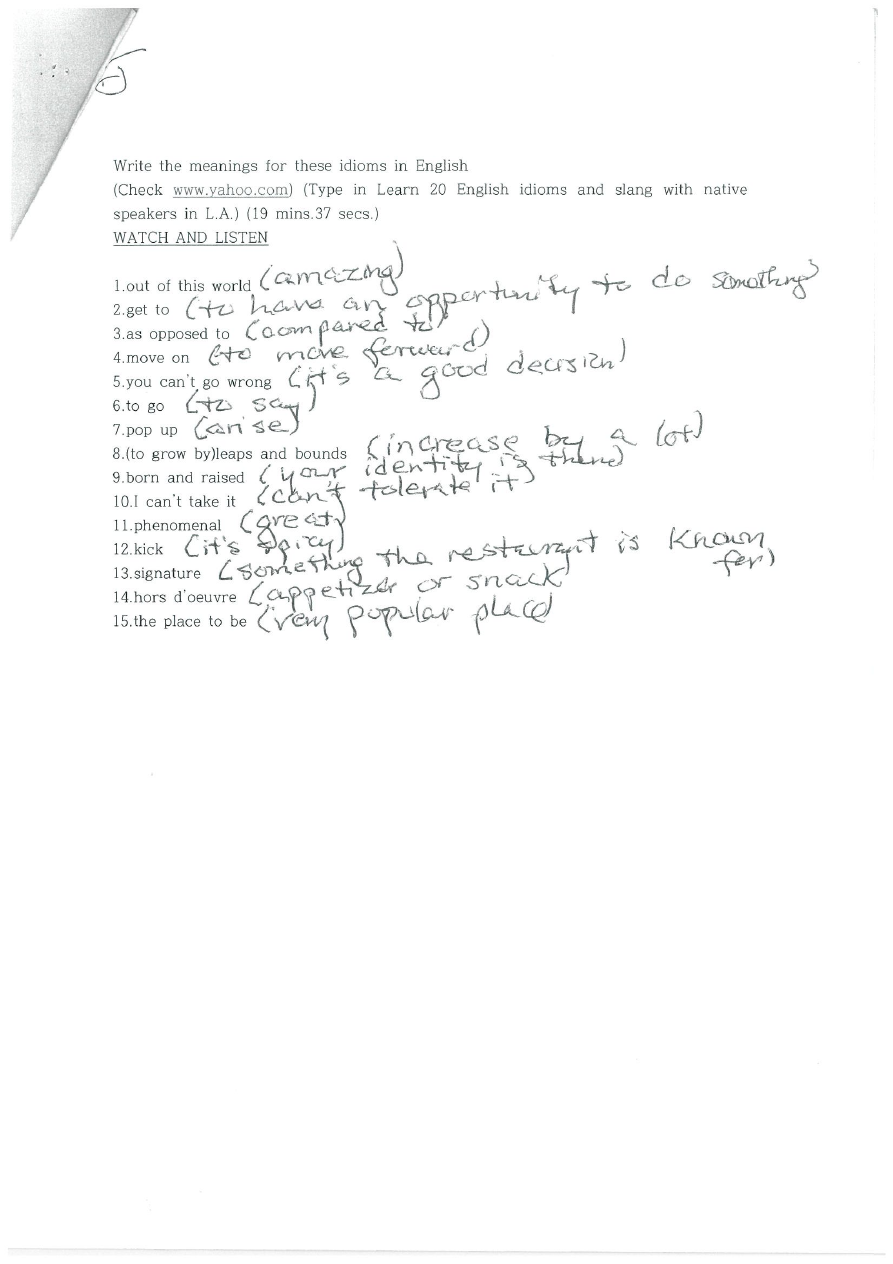 Write the meanings for these idioms in English
(Check www.yahoo.com) (Type in Learn 20 English idioms and slang with native
speakers in L.A.) (19 mins.37 secs.)
WATCH AND LISTEN
1.out of this world (amazing)
2.get to (to have an opportunity to do something)
3.as opposed to (compared to)
4.move on (to move forward)
5.you can't go wrong (it's a good decision)
6.to go (to say)
7.pop up (arise)
8.(to grow by)leaps and bounds (increase by a lot)
9.born and raised (your identity is there)
10.I can't take it (can't tolerate it)
11.phenomenal (great)
12.kick (it's spicy)
13.signature (something the restaurant is known
for)
14.hors d'oeuvre (appetizer or snack)
15.the place to be (very popular place)